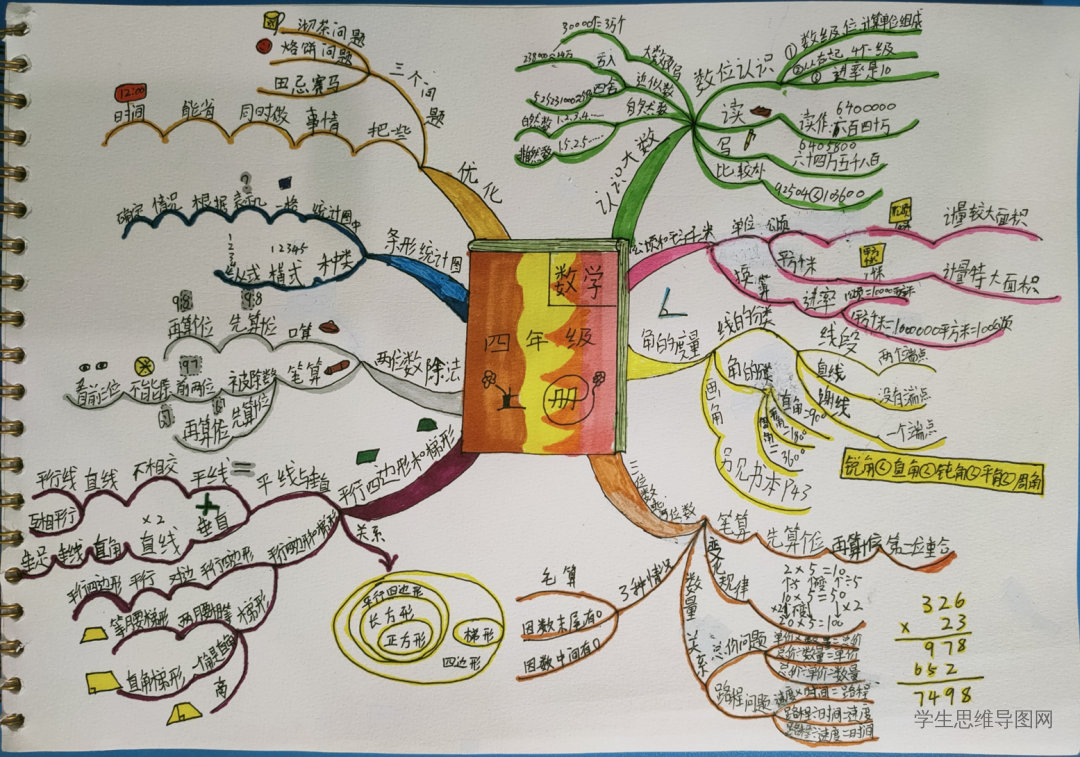 数学
四年级
册
优化
三个问题
沏茶问题
烙饼问题
田忌赛马
把些
事情
同时做
能省
时间
12:00
条形统计图
统计图中
一格
根据
情况
确定
种类
横式
12345
两位数除法
口算
先算位
再算位
9.8
笔算
被除数
前两位
97
先算位
再算位
平行四边形和梯形
平行线
直线
不相交
互相平行
垂直
直线
×2
直角
平行四边形
对边
平行
平行四边形
梯形
两腰相等
等腰梯形
直角梯形
高
关系
平行四边形
长方形
正方形
梯形
四边形
认识大数
数位认识
①数级位计算单位组成
4个一级
进率是10
读
6400000
读作:六百四十万
写
6405800
六十四万五千八百
比较
大数改写
近似数
四舍
五入
自然数
1.2.3.4……
非自然数
1.5.2.5……
公顷和平方千米
单位
公顷
计量较大面积
平方千米
计量特大面积
换算
进率
1公顷=10000平方米
角的度量
线的分类
线段
两个端点
直线
没有端点
射线
一个端点
画角
另见书本P43
直角=90°
平角=180°
周角=360°
锐角<直角<钝角<平角<周角
笔算
先算位
再算位
变化规律
2×5=10
10×5=50
20×5=100
数量关系
总价问题
单价×数量=总价
总价÷数量=单价
总价÷单价=数量
路程问题
速度×时间=路程
路程÷时间=速度
路程÷速度=时间
3种情况
笔算
因数末尾有0
因数中间有0
326
× 23
978
652
7498
学生思维导图网